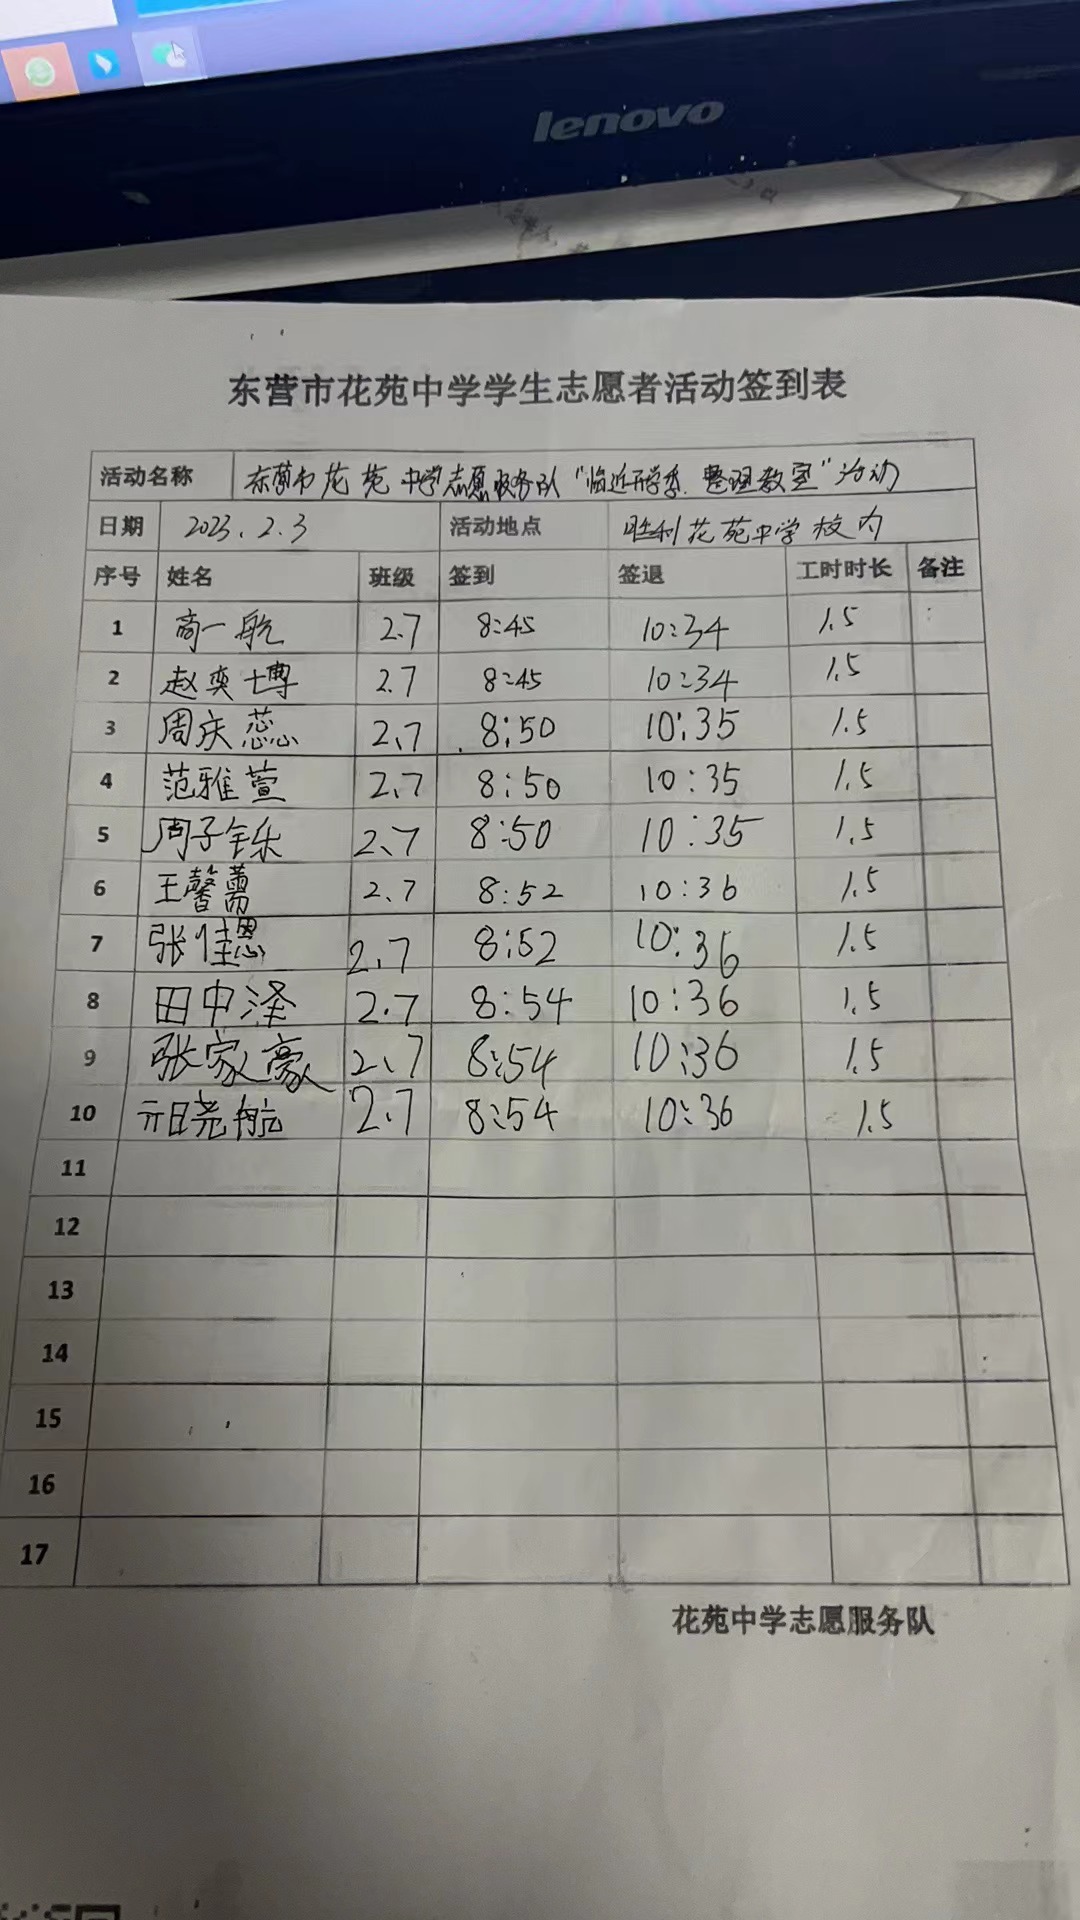 lenovo
东营市花苑中学学生志愿者活动签到表
活动名称 东营市花苑中学志愿服务队“临近开学季.整理教室”活动
日期 2023.2.3 活动地点 胜利花苑中学校内
序号 姓名 班级 签到 签退 工时时长 备注
1 商一航 2.7 8:45 10:34 1.5
2 赵奕博 2.7 8:45 10:34 1.5
3 周庆蕊 2.7 8:50 10:35 1.5
4 范雅萱 2.7 8:50 10:35 1.5
5 周子铄 2.7 8:50 10:35 1.5
6 王馨 2.7 8:52 10:36 1.5
7 张佳恩 2.7 8:52 10:36 1.5
8 田中泽 2.7 8:54 10:36 1.5
9 张家豪 2.7 8:54 10:36 1.5
10 尧航 2.7 8:54 10:36 1.5
11
12
13
14
15
16
17
花苑中学志愿服务队